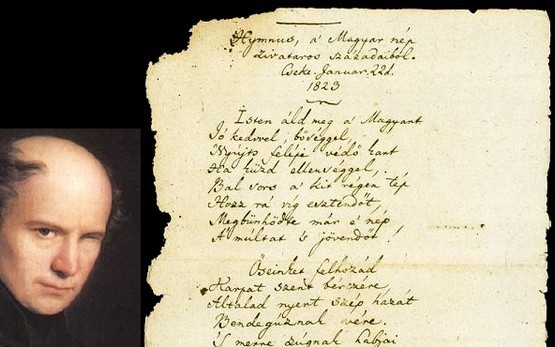 Hymnus, a' Magyar nép
zivataros századaiból.
Cseke. Januar. 22d.
1823
Isten áld meg a' Magyart
Jó kedvvel, bőséggel,
Nyújts feléje védő kart
Ha küzd ellenséggel,
Bal sors a' kit régen tép
Hozz rá víg esztendőt,
Megbűnhődte már e' nép
A múltat 's jövendőt!
Őseinket felhozád
Karpat szent bérczére,
Általad nyert szép hazát
Bendegúznak vére.
'S merre zúgnak habjai